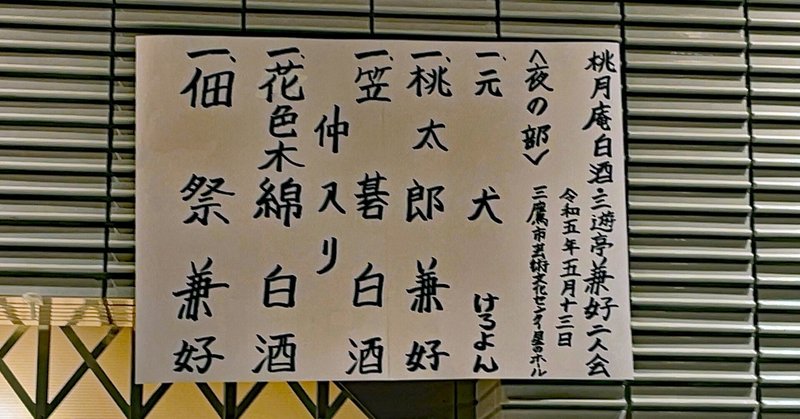 桃月庵白酒・三遊亭兼好二人会
令和五年五月十三日
三鷹市芸術文化センター星のホール
〈夜の部〉
一、元犬 けろよん
一、桃太郎 兼好
一、笠碁 白酒
仲入り
一、花色木綿 白酒
一、佃祭 兼好